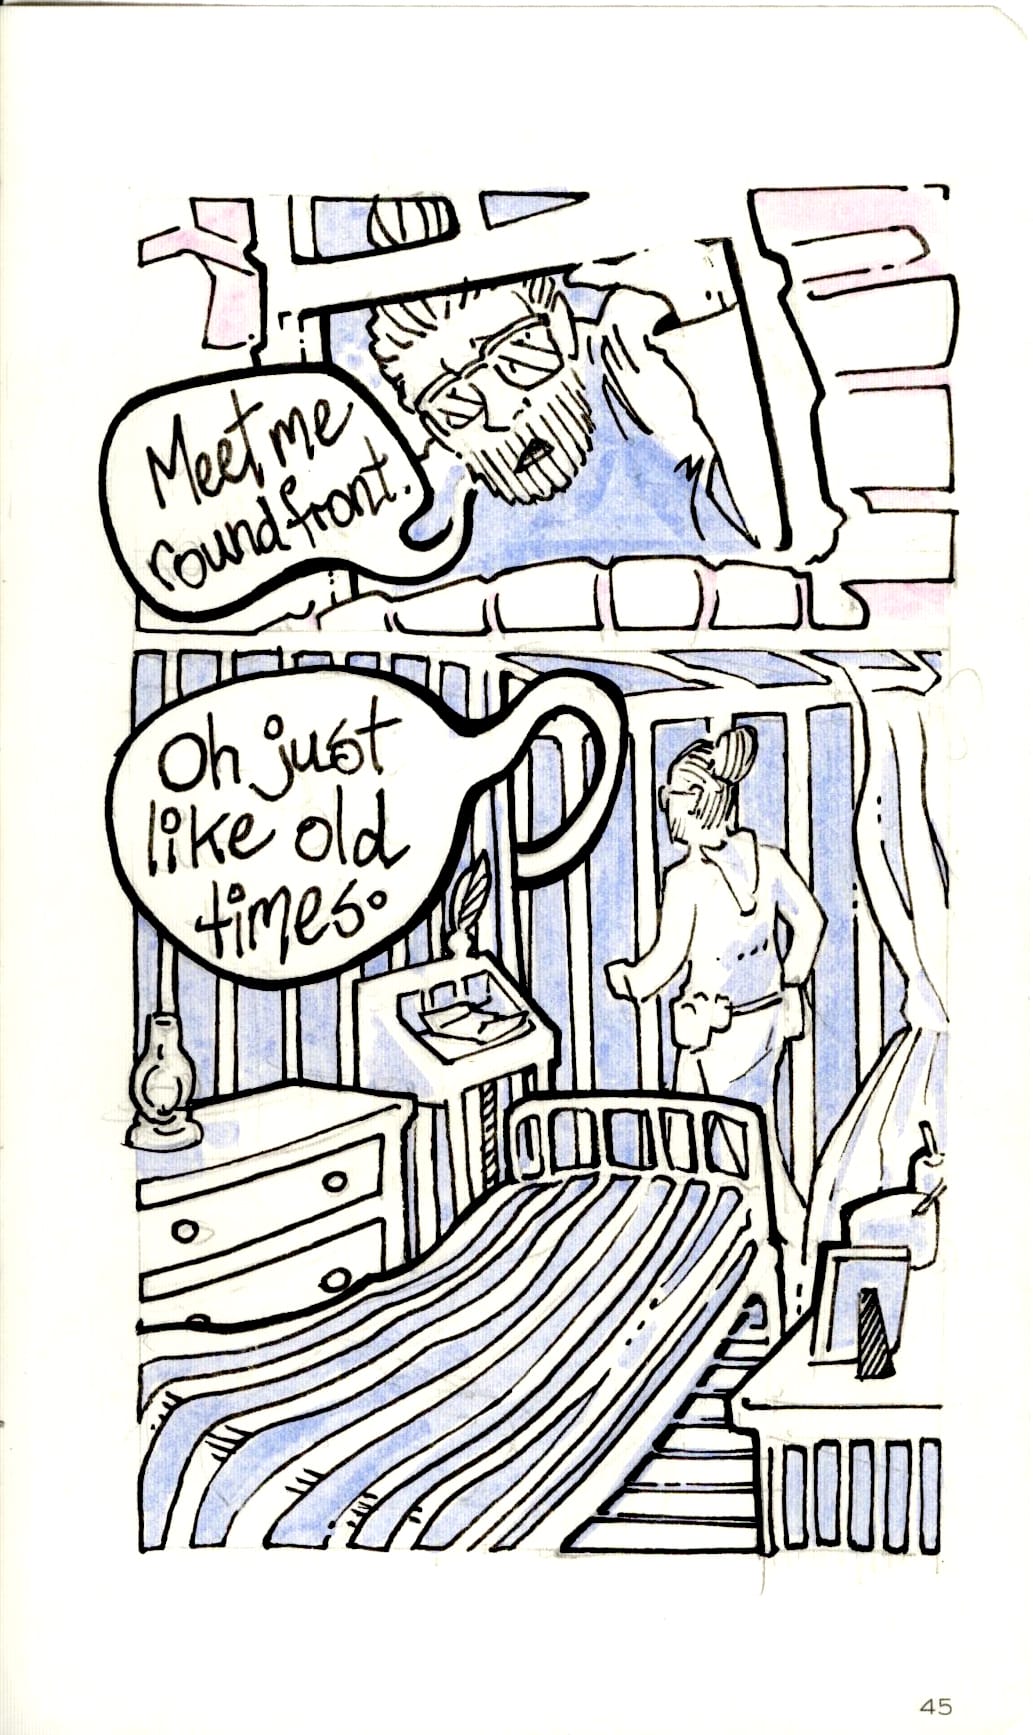 Meet me
round front.
Oh just
like old
times.
45